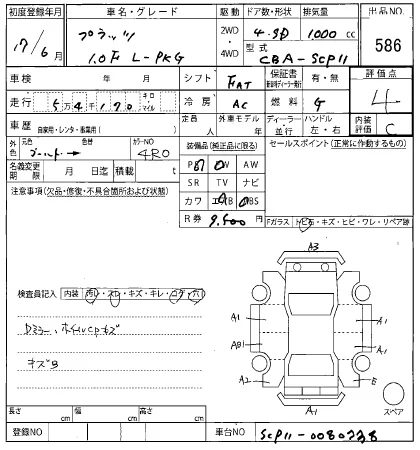 初度登録年月 車名・グレード 駆動 ドア数・形状 排気量 出品NO.
17/6月 プラッツ 2WD・4WD 4・SD 1000 cc 586
1.0F L-PKG 型式 CBA-SCP11
車検 年 月 シフト FAT 保証書 有・無 評価点
走行 5万4千170 キロ・マイル 冷房 AC 燃料 G 4
車歴 自家用・レンタ・事業用( ) 定員 人 外車モデル 年 ディーラー・並行 ハンドル 左・右 内装評価 C
外色 元色 ゴールド → 色替 カラーNO 4R0 装備品(純正品に限る) セールスポイント(正常に作動するもの)
名義変更期限 月 日迄 積載 t PS PW AW
SR TV ナビ
注意事項(欠品・修復・不具合箇所および状態) カワ エアB ABS
R券 9,500 円
Fガラス トビ石・キズ・ヒビ・ワレ・リペア跡
検査員記入 内装 汚レ・スレ・キズ・キレ・コゲ・穴
キズB
A3
A1
A1
AB1
A1
A2
E
A1
スペア
長さ cm 幅 cm 高さ cm
登録NO 車台NO SCP11-0080238